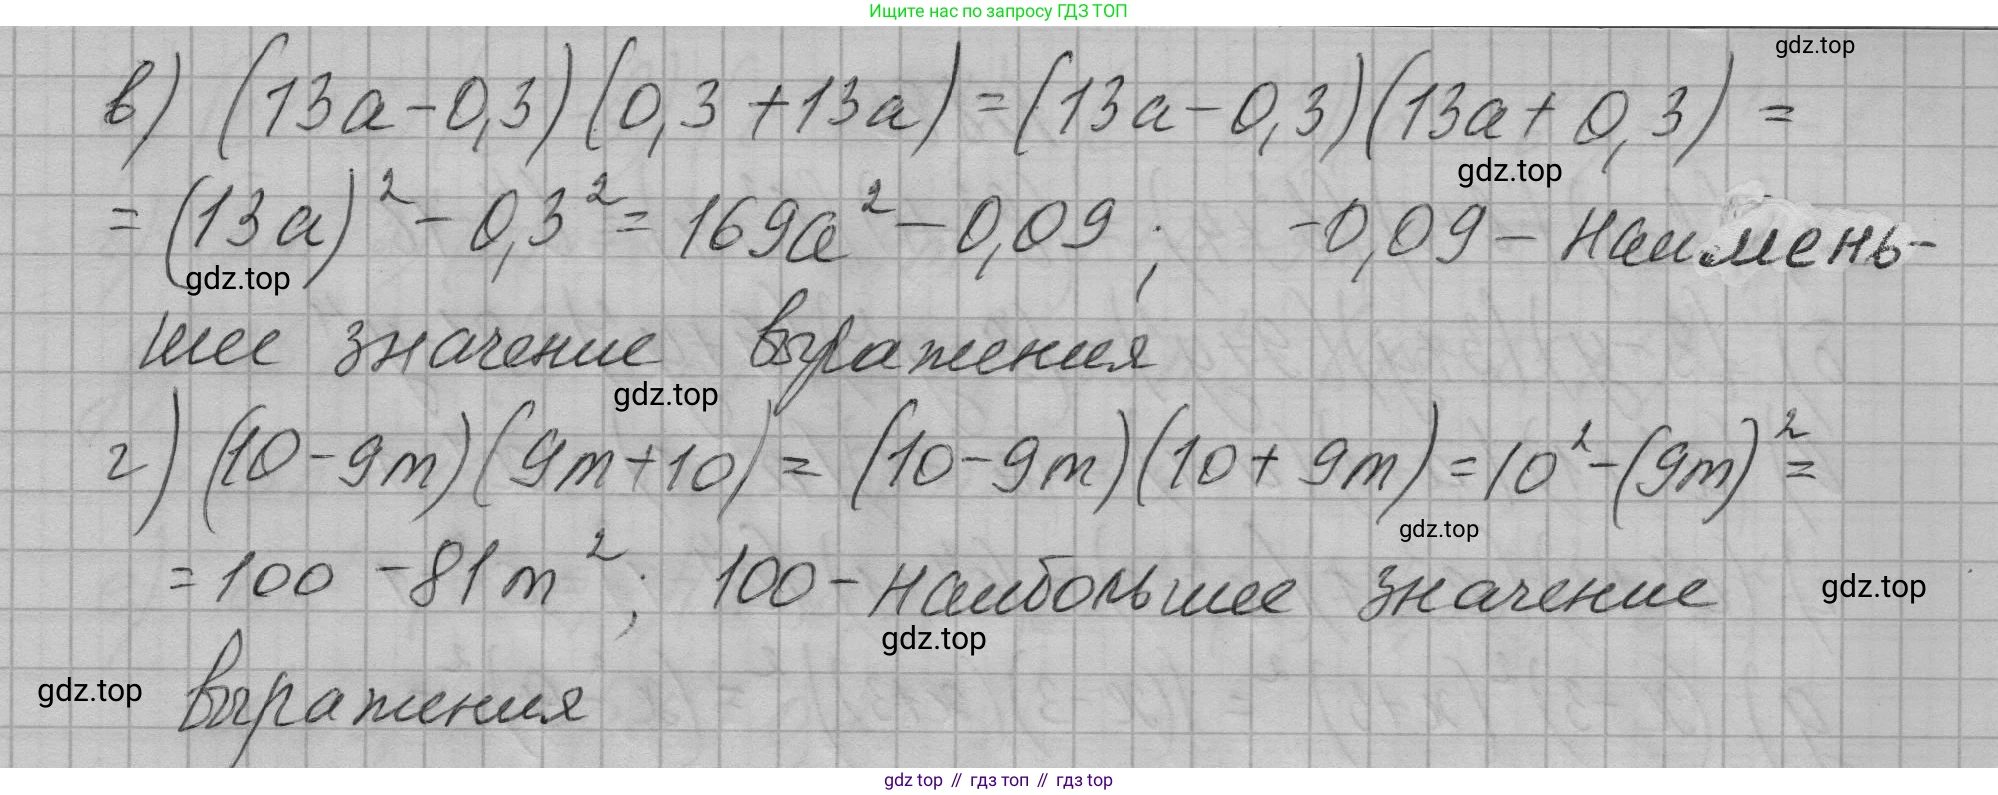 Ищите нас по запросу ГДЗ ТОП
gdz.top
в) (13a-0,3)(0,3+13a)=(13a-0,3)(13a+0,3)=
gdz.top
=(13a)²-0,3²=169a²-0,09; -0,09-наимень-
gdz.top
шее значение выражения
gdz.top
г) (10-9m)(9m+10)=(10-9m)(10+9m)=10²-(9m)²=
gdz.top
=100-81m²; 100-наибольшее значение
gdz.top
gdz.top
gdz.top
выражения
gdz top // гдз топ // гдз top